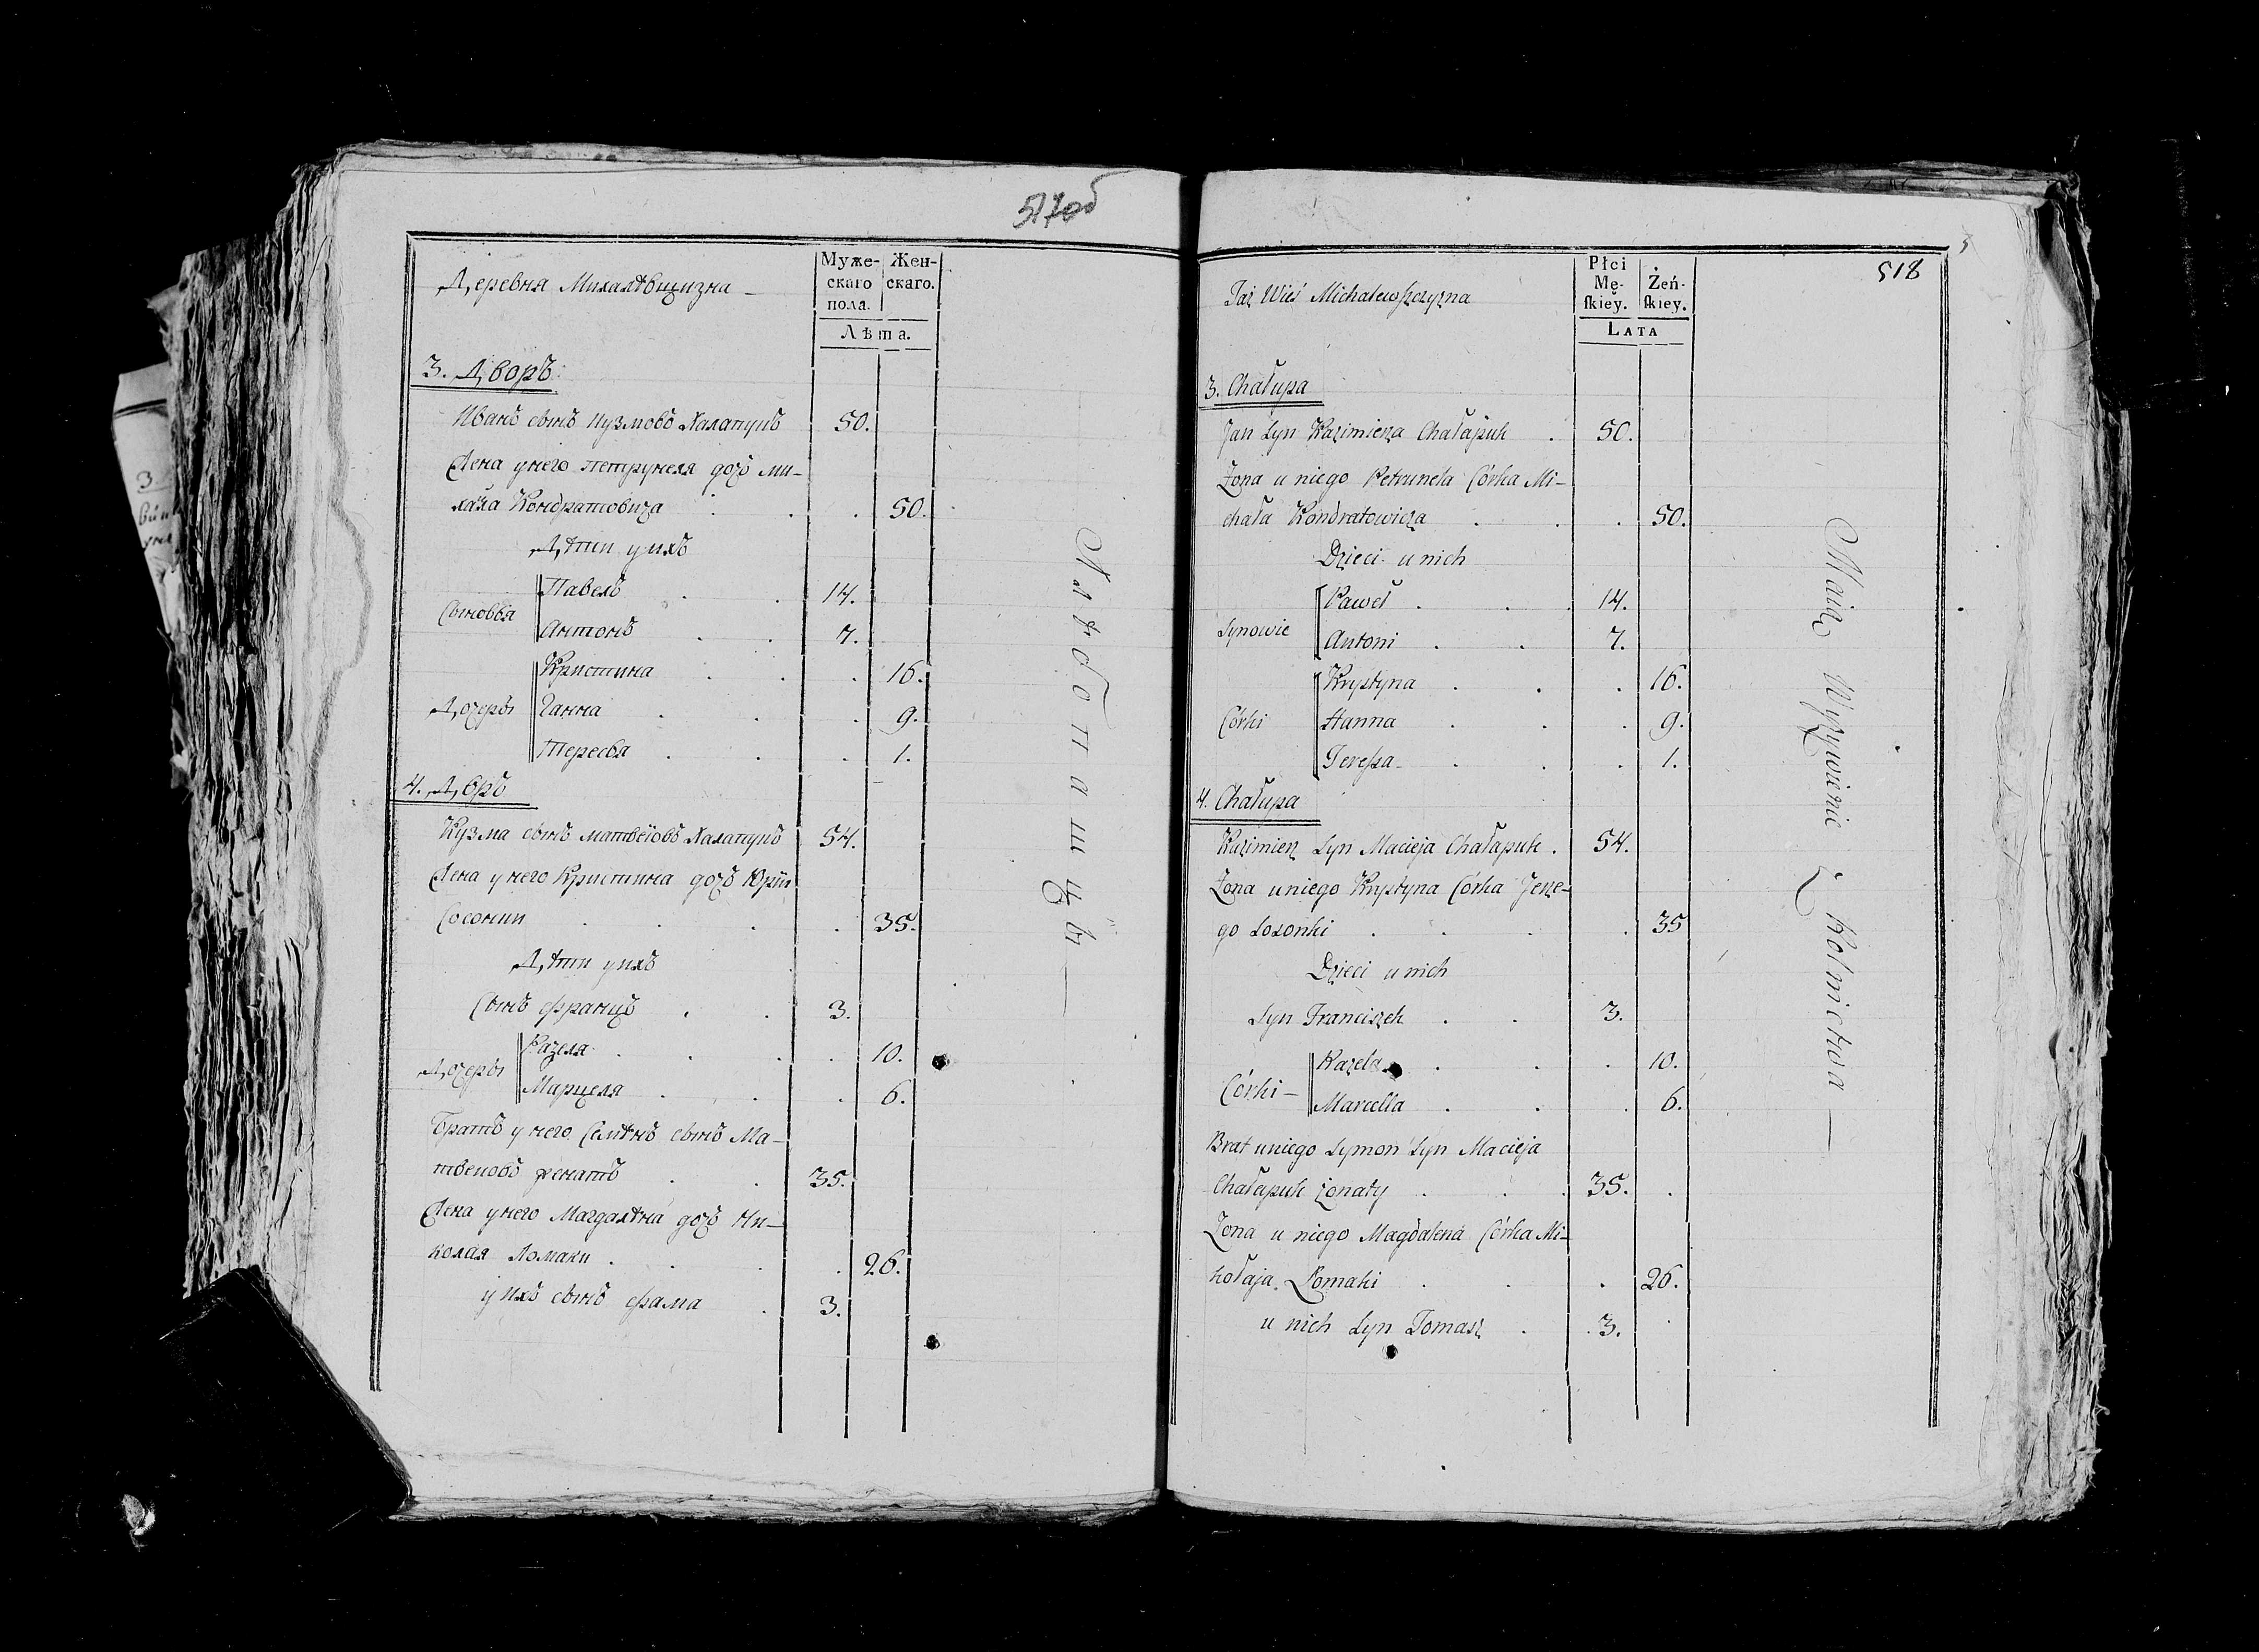 517об
Деревня Михалѣвщизна
Муже-
скаго
пола.
Жен-
скаго.
Лѣта.
3. Дворъ
Иванъ сынъ Кузмовъ Халапукъ 50.
Жена у него Петрунеля дочь Ми-
хала Кондратовича . . . 50.
Дѣти у ихъ
Сыновья
Павелъ . . 14.
Антонъ . . 7.
Дочеры
Кристина . . . 16.
Ганна . . . 9.
Тересья . . . 1.
4. Дворъ
Кузма сынъ Матвѣіовъ Халапукъ 54.
Жена у него Кристина дочь Юріи
Сосонки . . . . 35.
Дѣти у ихъ
Сынъ Францъ . . 3.
Дочеры
Разеля . . . . 10.
Марцеля . . . 6.
Братъ у него Семѣнъ сынъ Ма-
твеновъ женатъ . . 35.
Жена у него Магдалѣна дочь Ни-
колая Ломаки . . . . 26.
у ихъ сынъ Фама . 3.
Хлѣбопашцы
518
Taż Wieś Michalewszczyzna
Płci
Mę-
skiey.
Żeń-
skiey.
LATA
3. Chałupa
Jan Syn Kazimierza Chałapuk . 50.
Żona u niego Petrunela Córka Mi-
chała Kondratowicza . . . 50.
Dzieci u nich
Synowie
Paweł . . . 14.
Antoni . . 7.
Córki
Krystyna . . . 16.
Hanna . . . 9.
Teressa . . . 1.
4. Chałupa
Kazimierz Syn Macieja Chałapuk . 54.
Żona u niego Krystyna Córka Jerze-
go Sosonki . . . . 35
Dzieci u nich
Syn Franciszek . . 3.
Córki
Razela . . . 10.
Marcella . . . 6.
Brat u niego Symon Syn Macieja
Chałapuk żonaty . . . 35.
Żona u niego Magdalena Córka Mi-
kołaja Łomaki . . . 26.
u nich Syn Tomasz . . 3.
Maią Wyżywienie z Rolnictwa